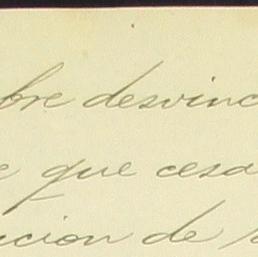 bre desvinc
e que cesa
ucion de